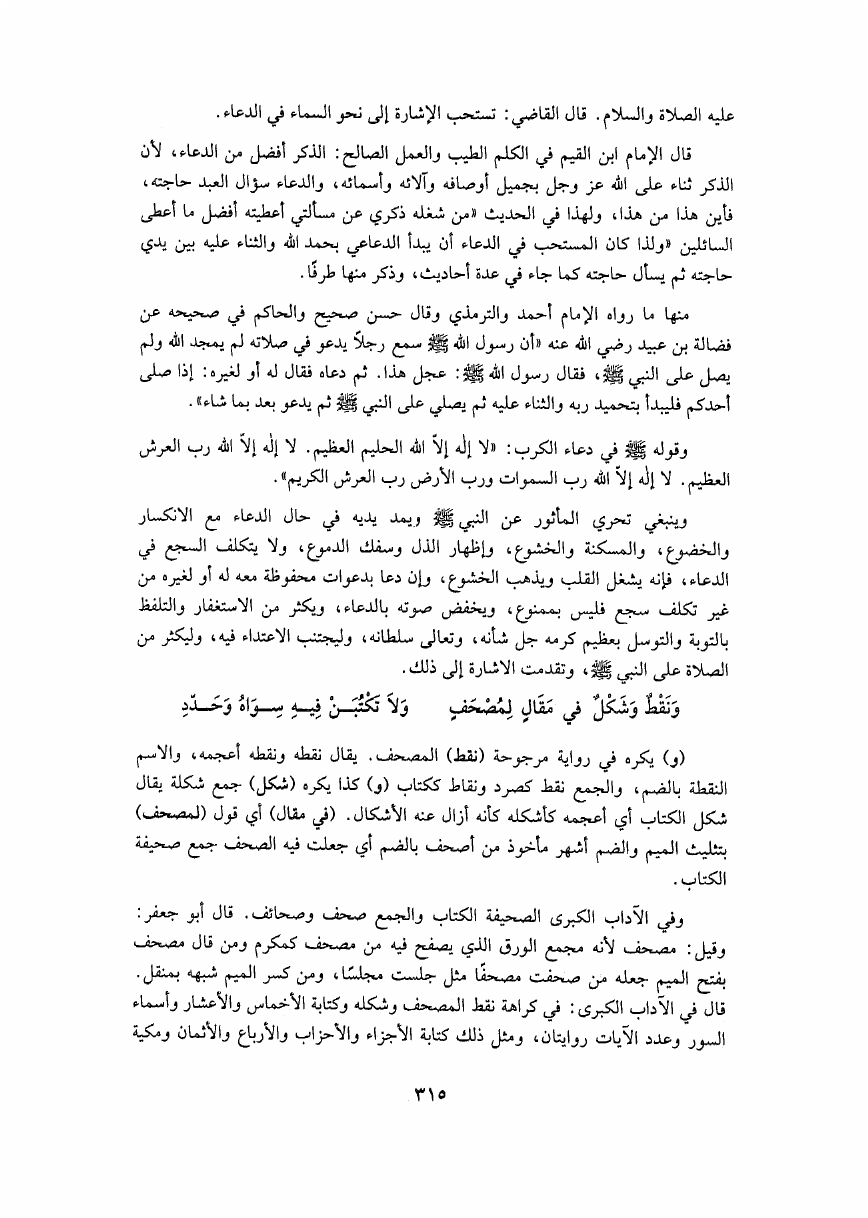 عليه الصلاة والسلام. قال القاضي: تستحب الإشارة إلى نحو السماء في الدعاء.
قال الإمام ابن القيم في الكلم الطيب والعمل الصالح: الذكر أفضل من الدعاء، لأن
الذكر ثناء على الله عز وجل بجميل أوصافه وآلائه وأسمائه، والدعاء سؤال العبد حاجته،
فأين هذا من هذا، ولهذا في الحديث «من شغله ذكري عن مسألتي أعطيته أفضل ما أعطى
السائلين «ولذا كان المستحب في الدعاء أن يبدأ الدعاعي بحمد الله والثناء عليه بين يدي
حاجته ثم يسأل حاجته كما جاء في عدة أحاديث، وذكر منها طرفًا.
منها ما رواه الإمام أحمد والترمذي وقال حسن صحيح والحاكم في صحيحه عن
فضالة بن عبيد رضي الله عنه «أن رسول الله ﷺ سمع رجلاً يدعو في صلاته لم يمجد الله ولم
يصل على النبي ﷺ، فقال رسول الله ﷺ: عجل هذا. ثم دعاه فقال له أو لغيره: إذا صلى
أحدكم فليبدأ بتحميد ربه والثناء عليه ثم يصلي على النبي ﷺ ثم يدعو بعد بما شاء».
وقوله ﷺ في دعاء الكرب: «لا إلٰه إلاّ الله الحليم العظيم. لا إلٰه إلاّ الله رب العرش
العظيم. لا إلٰه إلاّ الله رب السموات ورب الأرض رب العرش الكريم».
وينبغي تحري المأثور عن النبي ﷺ ويمد يديه في حال الدعاء مع الانكسار
والخضوع، والمسكنة والخشوع، وإظهار الذل وسفك الدموع، ولا يتكلف السجع في
الدعاء، فإنه يشغل القلب ويذهب الخشوع، وإن دعا بدعوات محفوظة معه له أو لغيره من
غير تكلف سجع فليس بممنوع، ويخفض صوته بالدعاء، ويكثر من الاستغفار والتلفظ
بالتوبة والتوسل بعظيم كرمه جل شأنه، وتعالى سلطانه، وليجتنب الاعتداء فيه، وليكثر من
الصلاة على النبي ﷺ، وتقدمت الاشارة إلى ذلك.
وَنَقْطٌ وَشَكْلٌ في مَقَالٍ لِمُصْحَفٍ وَلاَ تَكْتُبَـنْ فِيـهِ سِـوَاهُ وَحَـدِّدِ
(و) يكره في رواية مرجوحة (نقط) المصحف. يقال نقطه ونقطه أعجمه، والاسم
النقطة بالضم، والجمع نقط كصرد ونقاط ككتاب (و) كذا يكره (شكل) جمع شكلة يقال
شكل الكتاب أي أعجمه كأشكله كأنه أزال عنه الأشكال. (في مقال) أي قول (لمصحف)
بتثليث الميم والضم أشهر مأخوذ من أصحف بالضم أي جعلت فيه الصحف جمع صحيفة
الكتاب.
وفي الآداب الكبرى الصحيفة الكتاب والجمع صحف وصحائف. قال أبو جعفر:
وقيل: مصحف لأنه مجمع الورق الذي يصفح فيه من مصحف كمكرم ومن قال مصحف
بفتح الميم جعله من صحفت مصحفًا مثل جلست مجلسًا، ومن كسر الميم شبهه بمنقل.
قال في الآداب الكبرى: في كراهة نقط المصحف وشكله وكتابة الأخماس والأعشار وأسماء
السور وعدد الآيات روايتان، ومثل ذلك كتابة الأجزاء والأحزاب والأرباع والأثمان ومكية
٣١٥